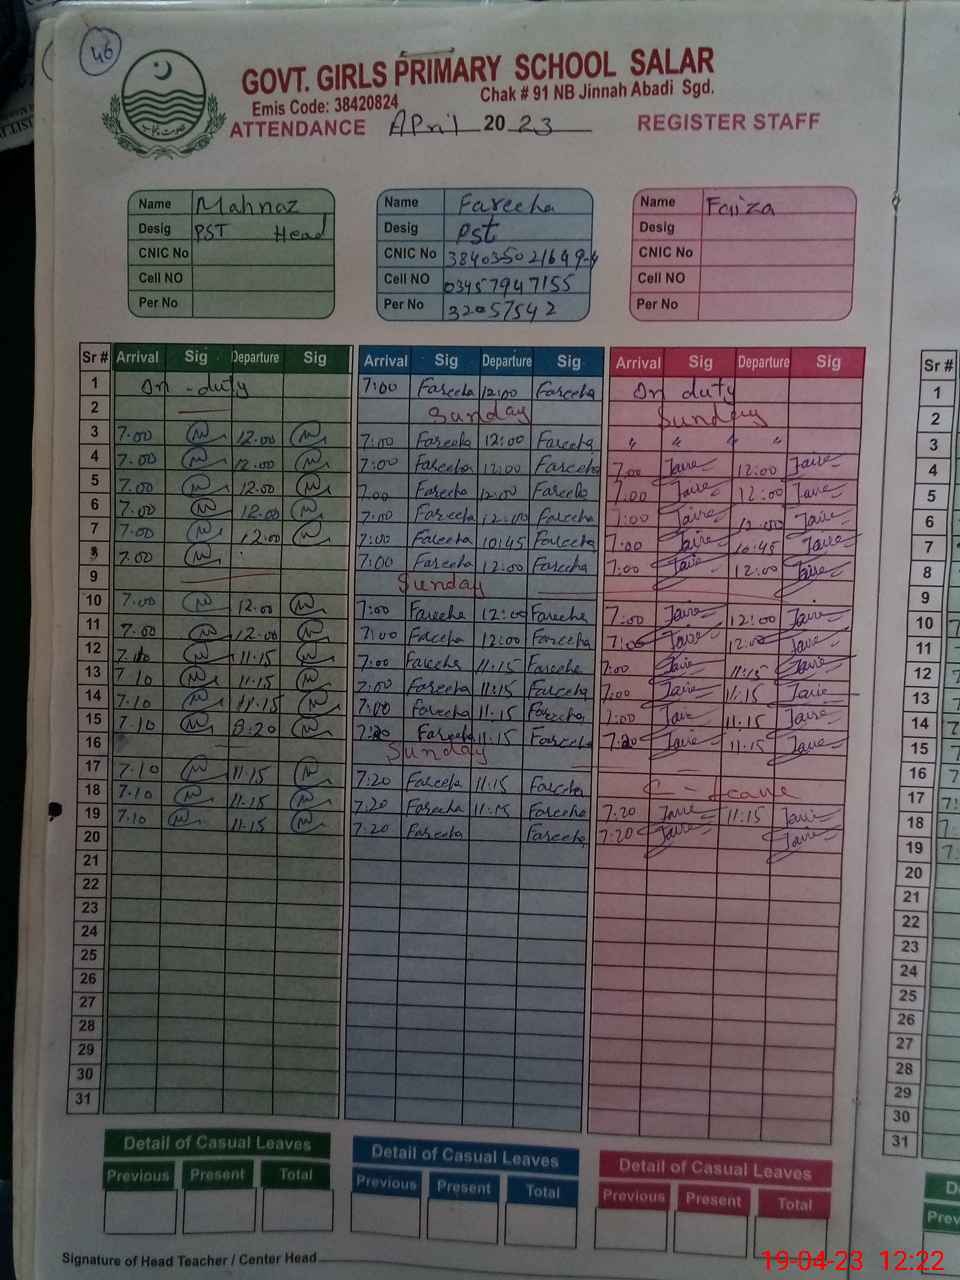 46
GOVT. GIRLS PRIMARY SCHOOL SALAR
Emis Code: 38420824 Chak # 91 NB Jinnah Abadi Sgd.
ATTENDANCE April 2023 REGISTER STAFF
Name Mahnaz Name Fareeha Name Faiza
Desig PST Head Desig Pst Desig
CNIC No CNIC No 384035021649-4 CNIC No
Cell NO Cell NO 03457947155 Cell NO
Per No Per No 32057542 Per No
Sr # Arrival Sig Departure Sig Arrival Sig Departure Sig Arrival Sig Departure Sig Sr #
1 On - duty 7:00 Fareeha 12:00 Fareeha On duty 1
2 Sunday Sunday 2
3 7.00 12.00 7:00 Fareeha 12:00 Fareeha " " " " 3
4 7.00 12.00 7:00 Fareeha 12:00 Fareeha 7:00 12:00 4
5 7.00 12.00 7:00 Fareeha 12:00 Fareeha 7:00 12:00 5
6 7.00 12.00 7:00 Fareeha 12:00 Fareeha 7:00 12:00 6
7 7.00 12.00 7:00 Fareeha 10:45 Fareeha 7:00 10:45 7
8 7.00 7:00 Fareeha 12:00 Fareeha 7:00 12:00 8
9 Sunday 9
10 7.00 12.00 7:00 Fareeha 12:00 Fareeha 7:00 12:00 10
11 7.00 12.00 7:00 Fareeha 12:00 Fareeha 7:00 12:00 11
12 7.10 11.15 7:00 Fareeha 11:15 Fareeha 7:00 11:15 12
13 7.10 11.15 7:00 Fareeha 11:15 Fareeha 7:00 11:15 13
14 7.10 11.15 7:00 Fareeha 11.15 Fareeha 7:00 11.15 14
15 7.10 8.20 7:20 Fareeha 11.15 Fareeha 7:20 11.15 15
16 Sunday 16
17 7.10 11.15 7:20 Fareeha 11.15 Fareeha C - leave 17
18 7.10 11.15 7.20 Fareeha 11.15 Fareeha 7.20 11.15 18
19 7.10 11.15 7:20 Fareeha Fareeha 7:20 19
20 20
21 21
22 22
23 23
24 24
25 25
26 26
27 27
28 28
29 29
30 30
31 31
Detail of Casual Leaves Detail of Casual Leaves Detail of Casual Leaves
Previous Present Total Previous Present Total Previous Present Total
Signature of Head Teacher / Center Head
19-04-23 12:22